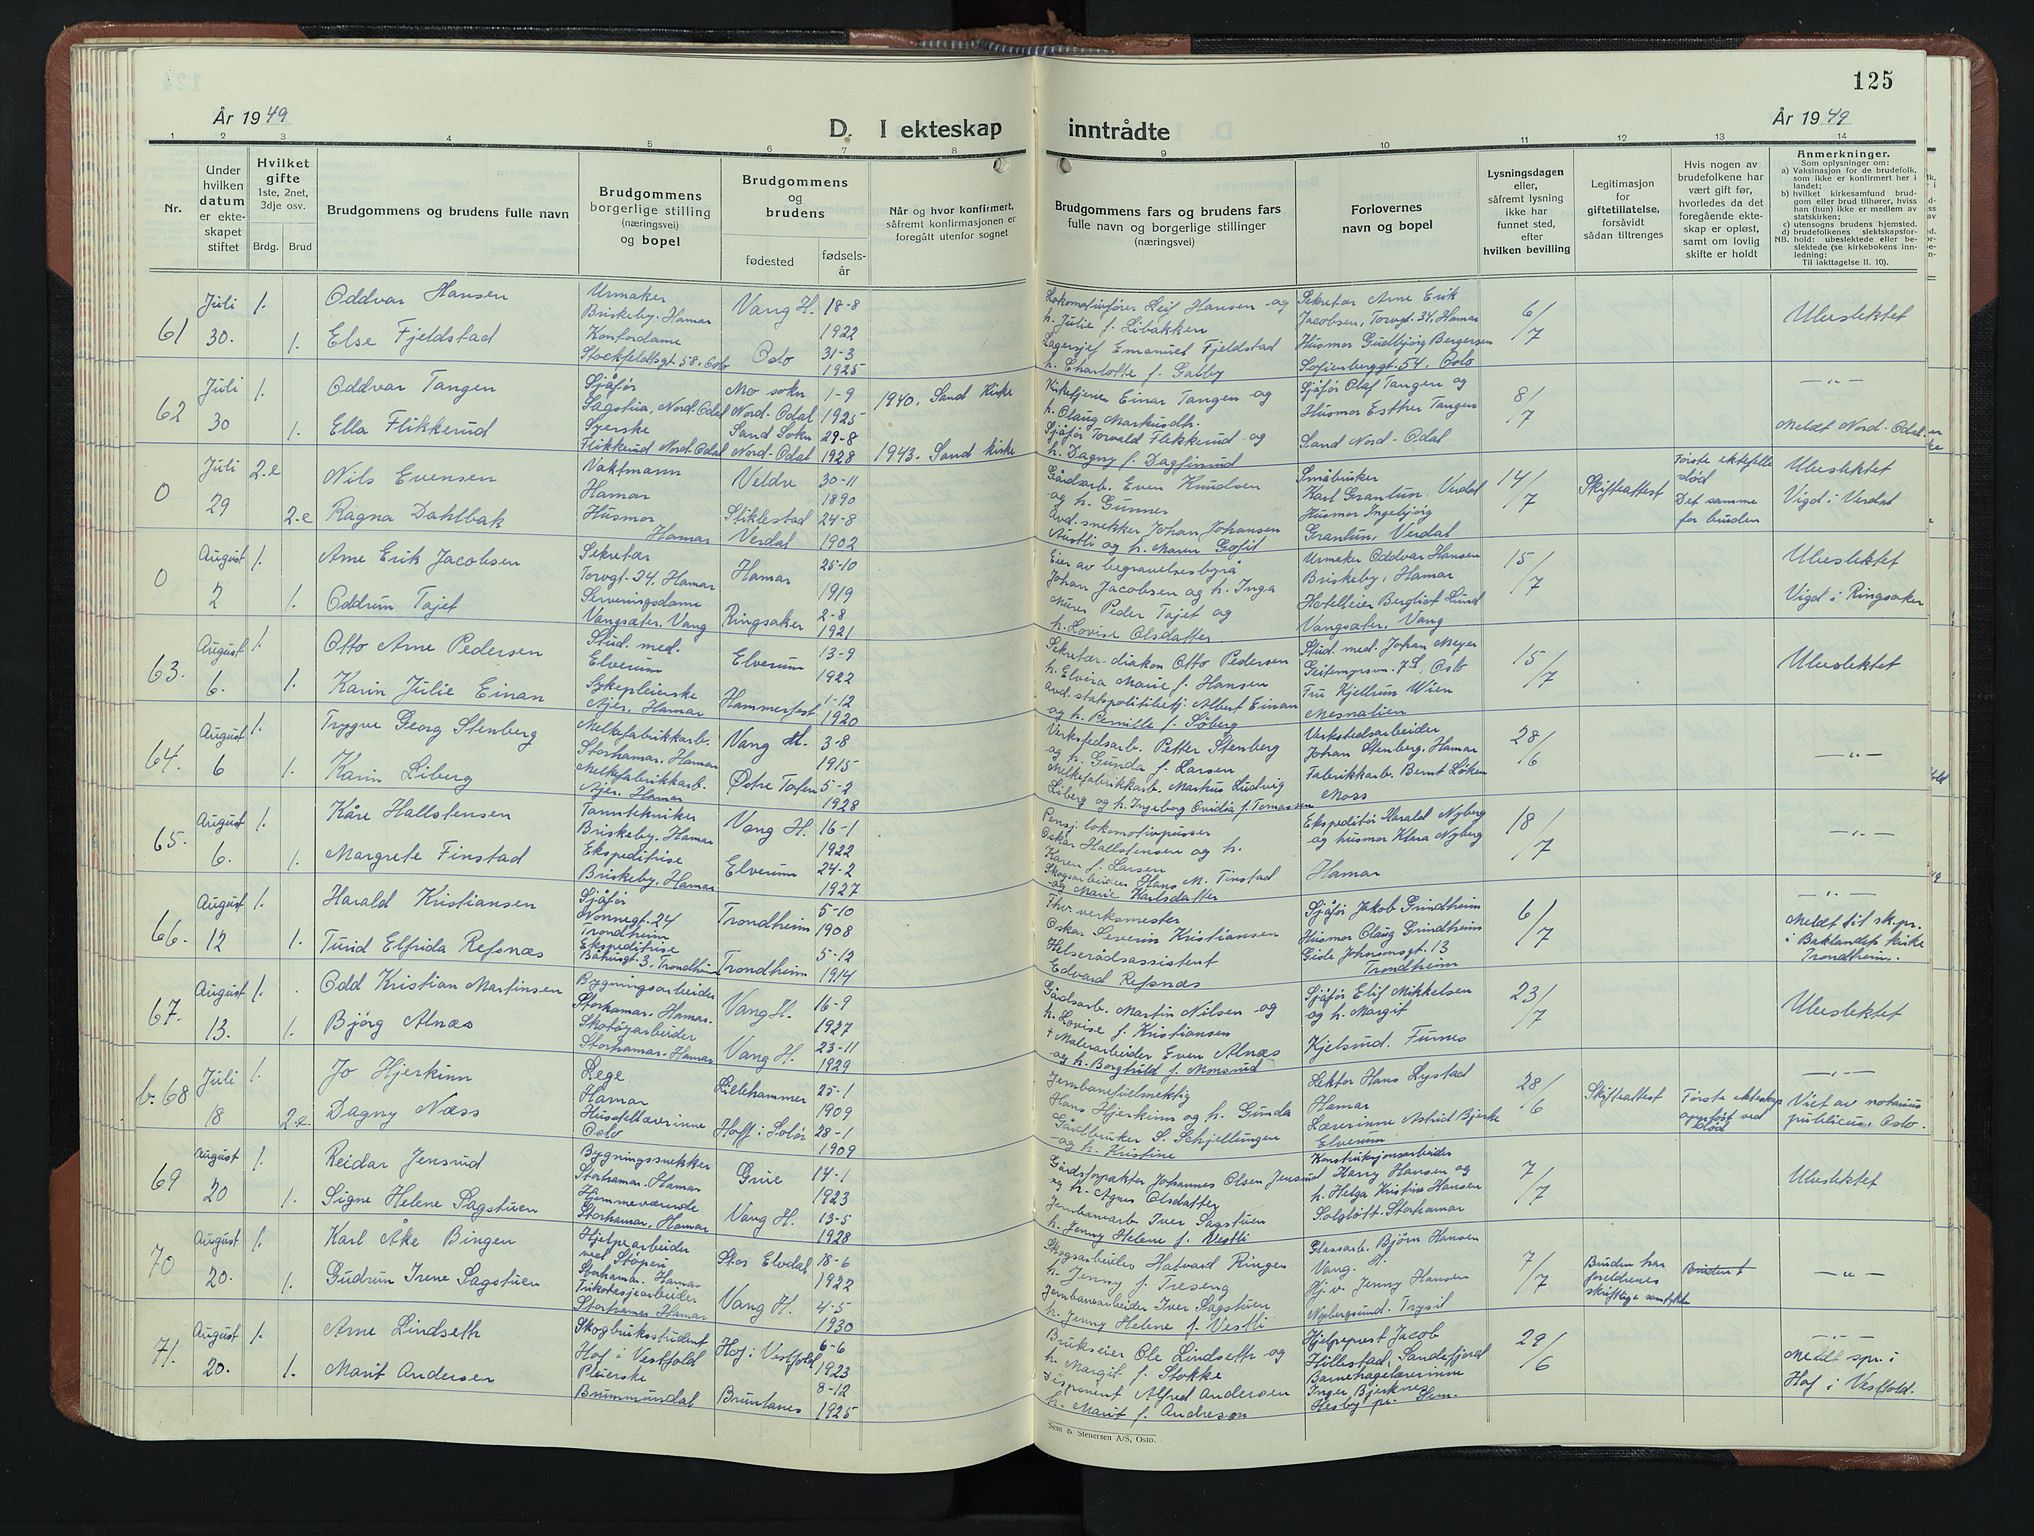 125
År 1949
År 1949
D. I ekteskap inntrådte
1 2 3 4 5 6 7 8 9 10 11 12 13 14
Nr.
Under hvilken datum er ekteskapet stiftet
Hvilket gifte
1ste, 2net, 3dje osv.
Brdg. Brud
Brudgommens og brudens fulle navn
Brudgommens borgerlige stilling (næringsvei) og bopel
Brudgommens og brudens
fødested
fødsels-år
Når og hvor konfirmert, såfremt konfirmasjonen er foregått utenfor sognet
Brudgommens fars og brudens fars fulle navn og borgerlige stillinger (næringsvei)
Forlovernes navn og bopel
Lysningsdagen eller, såfremt lysning ikke har funnet sted, efter hvilken bevilling
Legitimasjon for giftetillatelse, forsåvidt sådan tiltrenges
Hvis nogen av brudefolkene har vært gift før, hvorledes da det foregående ekteskap er opløst, samt om lovlig skifte er holdt
Anmerkninger.
Som oplysninger om:
a) Vaksinasjon for de brudefolk, som ikke er konfirmert her i landet;
b) hvilket kirkesamfund brudgom eller brud tilhører, hviss han (hun) ikke er medlem av statskirken;
c) utensogns brudens hjemsted.
d) brudefolkenes slektskapsforhold: ubeslektede eller beslektede (se kirkebokens innledning:
NB.
Til iakttagelse II. 10).
61 Juli 30. 1. 1.
Oddvar Hansen
Else Fjeldstad
Urmaker
Briskeby. Hamar
Kontordame
Stockfeldtsgt. 58. Oslo
Vang H. 18-8 1922
Oslo 31-3 1925
Lokomotivfører Leif Hansen og
h. Julie f. Libakken
Lagersjef Emanuel Fjeldstad
h. Charlotte f. Gabby
Sekretær Arne Erik
Jacobsen, Torvgt. 34, Hamar
Husmor Gudbjørg Bergersen
Sofienberggt. 54. Oslo
6/7
Ubeslektet
62 Juli 30 1. 1.
Oddvar Tangen
Ella Flikkerud
Sjåfør
Sagstua, Nord-Odal
Syerske
Flikkerud Nord-Odal
Mo sokn Nord-Odal 1-9 1925
Sand Sokn Nord-Odal 29-8 1928
1940. Sand Kirke
1943. Sand kirke
Kirketjener Einar Tangen og
h. Olaug Markusdtr.
Sjåfør Torvald Flekkerud og
h. Dagny f. Dagfinrud
Sjåfør Olaf Tangen og
Husmor Esther Tangen
Sand Nord-Odal
8/7
— „ —
Meldt Nord-Odal
0 Juli 29 2.e 2.e
Nils Evensen
Ragna Dahlbak
Vaktmann
Hamar
Husmor
Hamar
Veldre 30-11 1890
Stiklestad Verdal 24-8 1902
Gårdsarb. Even Knudsen
og h. Gunner
Avd. snekker Johan Johansen
Austli og h. Maren Gofit
Småbruker
Karl Grantun, Verdal
Husmor Ingebjørg
Grantun, Verdal
14/7
Skifteattest
Første ektefelle
død
Det samme
for bruden
Ubeslektet
Vigd i Verdal
0 August 2 1. 1.
Arne Erik Jacobsen
Oddrun Tajet
Sekretær
Torvgt. 34. Hamar
Serveringsdame
Vangsæter, Vang
Hamar 25-10 1919
Ringsaker 2-8 1921
Eier av begravelsesbyrå
Johan Jacobsen og h. Inga
Murer Peder Tajet og
h. Lovise Olsdatter
Urmaker Oddvar Hansen
Briskeby, Hamar
Hotelleier Bergliot Lund
Vangsæter, Vang
15/7
Ubeslektet
Vigd i Ringsaker
63. August 6. 1. 1.
Otto Arne Pedersen
Karin Julie Einan
Stud. med.
Elverum
Sykepleierske
Ajer, Hamar
Elverum 13-9 1922
Hammerfest 1-12 1920
Sekretær-diakon Otto Pedersen
h. Elvira Marie f. Hansen
Avd. statspolitibetj. Albert Einan
og h. Pernille f. Søberg
Stud. med. Johan Meyer
Geitemyrsvn. 7S Oslo
Fru Kjellrun Wien
Mesnalien
15/7
Ubeslektet
64. August 6 1. 1.
Trygve Georg Stenberg
Karin Liberg
Melkefabrikkarb.
Storhamar. Hamar
Melkefabrikkarb.
Ajer. Hamar
Vang H. 3-8 1915
Østre Toten 5-2 1928
Verkstedsarb. Petter Stenberg
og h. Gunda f. Larsen
Melkefabrikkarb. Markus Ludvig
Liberg og h. Ingeborg Ovidia f. Tomassen
Verkstedsarbeider
Johan Stenberg. Hamar
Fabrikkarb. Bernt Løken
Moss
28/6
— „ —
65. August 6. 1. 1.
Kåre Hallstensen
Margrete Finstad
Tanntekniker
Briskeby. Hamar
Ekspeditrise
Briskeby. Hamar
Vang H. 16-1 1922
Elverum 24-2 1927
Pensj. lokomotivpusser
Oskar Hallstensen og h.
Karen f. Larsen
Skogsarbeider Hans M. Finstad
og Marie Karlsdatter
Ekspeditør Harald Nyberg
og husmor Klara Nyberg
Hamar
18/7
— „ —
66. August 12 1. 1.
Harald Kristiansen
Turid Elfrida Refsnæs
Sjåfør
Nonnegt. 24
Trondheim
Ekspeditrise
Båhusgt. 3, Trondheim
Trondheim 5-10 1908
Trondheim 5-12 1914
verksmester
Oskar Severin Kristiansen
Helserådsassistent
Edvard Refsnæs
Sjåfør Jakob Grindheim
Husmor Olaug Grindheim
Gisle Johnsonsgt. 13
Trondheim
6/7
— „ —
Meldt til sk.pr.
i Baklandet kirke
Trondheim.
67. August 13. 1. 1.
Odd Kristian Martinsen
Bjørg Alnæs
Bygningsarbeider
Storhamar. Hamar.
Skotøyarbeider
Storhamar. Hamar
Vang H. 16-9 1927
Vang H. 23-11 1929
Gårdsarb. Martin Nilsen og
h. Lovise f. Kristiansen
+ Malerarbeider Even Alnæs
og h. Borghild f. Monsrud
Sjåfør Elif Mikkelsen
og h. Margit
Kjelsrud. Furnes
23/7
Ubeslektet
b. 68 Juli 18 1. 2.e.
Jo Hjerkinn
Dagny Næss
Lege
Hamar
Husstellærinne
Oslo
Lillehammer 25-1 1909
Hoff i Solør 28-1 1909
Jernbanefullmektig
Hans Hjerkinn og h. Gunda
Gårdbruker S. Schjellungen
og h. Kristine
Lektor Hans Lystad
Hamar
Lærerinne Astrid Bjerke
Elverum
28/6
Skifteattest
Første ekteskap
oppløst ved
død
— „ —
Viet av notarius
publicus, Oslo.
69 August 20 1. 1.
Reidar Jensrud
Signe Helene Sagstuen
Bygningssnekker
Storhamar. Hamar
Hjemmeværende
Storhamar. Hamar
Grue 17-1 1923
Vang H. 13-5 1928
Gårdsforpakter Johannes Olsen Jensrud
og h. Agnes Olsdatter
Jernbanearb. Iver Sagstuen
h. Jenny Helene f. Vestli
Konstruksjonsarbeider
Harry Hansen og
h. Helga Kristine Hansen
Solgløtt. Storhamar
7/7
Ubeslektet
70 August 20. 1. 1.
Karl Åke Bingen
Gudrun Irene Sagstuen
Hjelpearbeider
ved Støperi
Storhamar. Hamar
Trikotasjearbeider
Storhamar. Hamar
Stor Elvdal 18-6 1922
Vang H. 4-5 1930
Skogsarbeider Halvard Ringen
h. Jenny f. Treseng
Jernbanearbeider Iver Sagstuen
h. Jenny Helene f. Vestli
Glassarb. Bjørn Hansen
Vang. H.
Hj.v. Jenny Hansen
Nybergsund. Trysil
7/7
Bruden har
foreldrenes
skriftlige samtykke
— „ —
71. August 20. 1. 1.
Arne Lindseth
Marit Andersen
Skogbruksstudent
Hof i Vestfold
Pleierske
Brummundal
Hof i Vestfold 6-6 1923
8-12 1925
Brukseier Ole Lindseth og
h. Margit f. Stokke
Disponent Alfred Andersen
h. Marit f. Andreson
Hjelpeprest Jacob
Hillestad, Sandefjord
Barnehagelærerinne
Inger Bjerknes
Hesby pr. Sem.
29/6
— „ —
Meldt spr. i
Hof i Vestfold.
Sem & Stenersen A/S, Oslo.